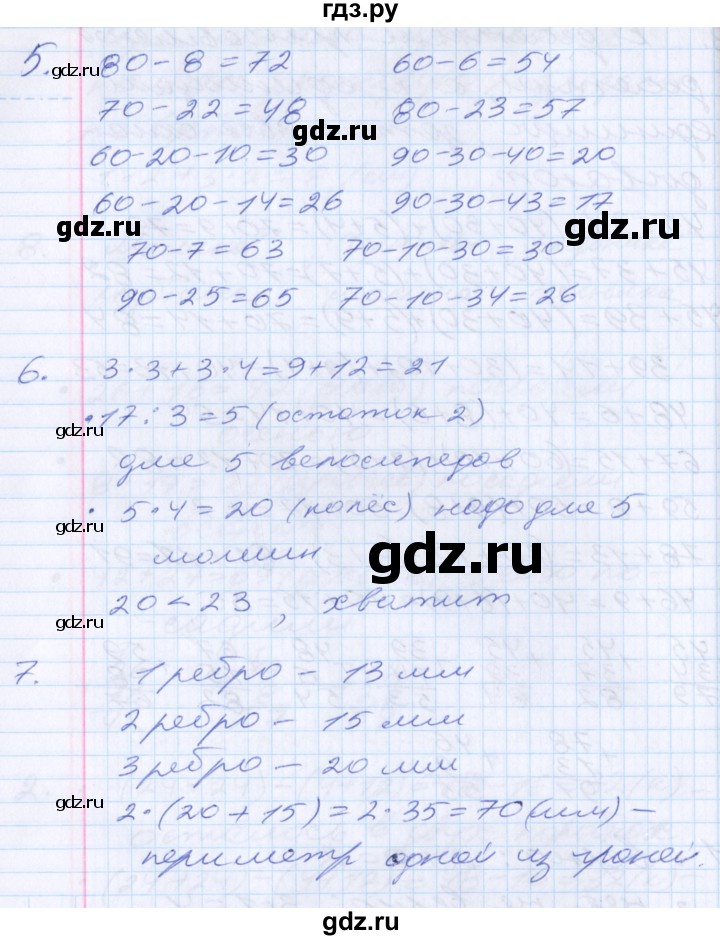 гдз.ру
5. 80-8=72 60-6=54
gdz.ru
70-22=48 80-23=57
gdz.ru
60-20-10=30 90-30-40=20
60-20-14=26 90-30-43=17
gdz.ru gdz.ru
70-7=63 70-10-30=30
90-25=65 70-10-34=26
6. 3·3+3·4=9+12=21
· 17:3=5 (остаток 2)
gdz.ru
для 5 велосипедов
· 5·4=20 (колёс) надо для 5
gdz.ru
машин
gdz.ru
20<23, хватит
gdz.ru
7. 1 ребро - 13 мм
gdz.ru
2 ребро - 15 мм
3 ребро - 20 мм
gdz.ru
2·(20+15)=2·35=70(мм) -
периметр одной из граней.
gdz.ru